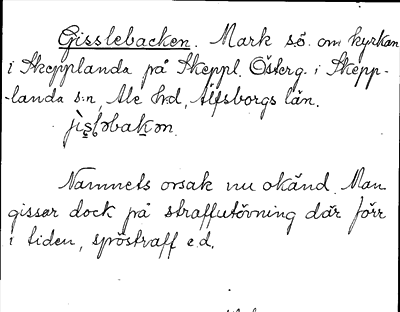 Gisslebacken. Mark s.ö. om kyrkan
i Skepplanda på Skeppl. Österg. i Skepp-
-landa s:n, Ale h:d, Älfsborgs län.
Namnets orsak nu okänd. Man
gissar dock på straffutövning där förr
i tiden, spöstraff e.d.